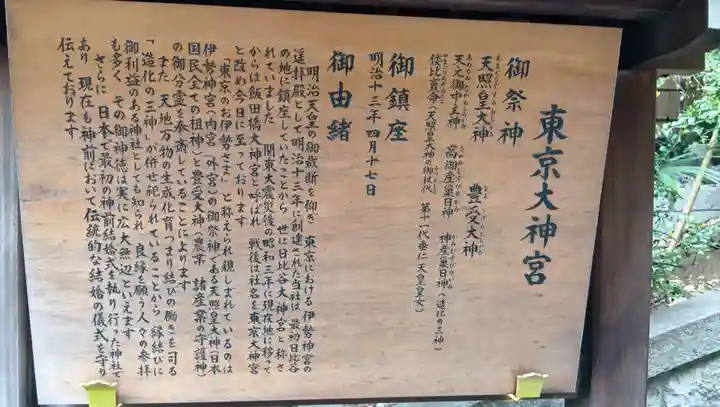 東京大神宮
御祭神
天照皇大神　豊受大神
天之御中主神　高御産巣日神　神産巣日神（造化の三神）
倭比賣命（天照皇大神の御杖代　第十一代垂仁天皇皇女）
御鎮座
明治十三年四月十七日
御由緒
明治天皇の御裁断を仰ぎ　東京における伊勢神宮の
遥拝殿として明治十三年に創建された当社は　最初日比谷
の地に鎮座していたことから　世に日比谷大神宮と称さ
れていました　関東大震災後の昭和三年に現在地に移って
からは飯田橋大神宮と呼ばれ　戦後は社名を東京大神宮
と改め今日に至っております
「東京のお伊勢さま」と称えられ親しまれているのは
伊勢神宮（内宮・外宮）の御祭神である天照皇大神（日本
国民全ての祖神）と豊受大神（農業　諸産業の守護神）
の御分霊を奉斎していることによります
また　天地万物の生成化育　つまり結びの働きを司る
「造化の三神」が併せ祀られていることから　縁結びに
御利益のある神社としても知られ　良縁を願う人々の参拝
も多く　その御神徳は実に広大無辺といえます
さらに　日本で最初の神前結婚式を執り行った神社で
あり　現在も神前において伝統的な結婚の儀式を守り
伝えております